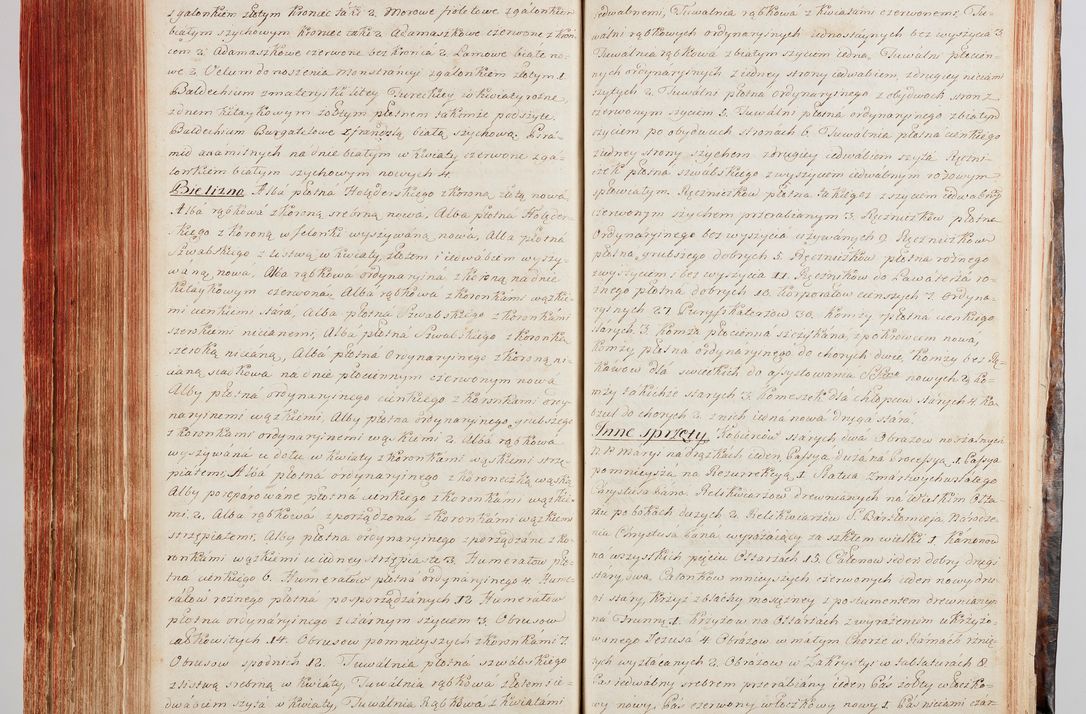 z galonkiem złotym koronec taki 2. Morowe fioletowe z galonkiem
białym szychowym koronec taki 2. Adamaszkowe czerwone z koron
com 2. Adamaszkowe czerwone bez koronia 2. Lamowe białe no-
we 2. Velum do noszenia Monstrancyi z galonkiem złotym 1
Baldechium z materyi litey Tureckiey w kwiaty rożne,
z dnem kitaykowym żołtym płotnem takimże podszyte.
Baldechium Burgatelowe z frandzlą białą szychową.
na dnie białym w kwiaty czerwone z ga-
lonkiem białym szychowym nowych 4.
Bielizna. Alba płotna Holęderskiego z koroną złotą nowa,
Alba rąbkowa z koroną srebrną nowa, Alba płotna Holęder-
skiego z koroną w Jelonki wyszywaną nowa, Alba płotna
Szwabskiego z listwą w kwiaty złotem i iedwabiem wyszy-
waną, nowa, Alba rąbkowa ordynaryina z koroną na dnie
kitaykowym czerwoną, Alba rąbkowa z koronkami wązkie-
mi cienkiem stara, Alba płotna Szwabskiego z koronkami
szerokiemi nicianemi, Alba płotna Szwabskiego z koronką
szeroką niciáną, Alba płotna Ordynaryinego z koroną ni-
cianą siatkową na dnie płociennym czerwonym nowa
Alby płotna ordynaryinego cienkiego z koronkami ordy-
naryinemi wązkiemi, Alby płotna ordynaryinego grubszego
z koronkami ordynaryinemi wązkiemi 2. Alba rąbkowa
wyszywana u dołu w kwiaty z koronkami wąskiemi strzę-
piatemi, Alba płotna ordynaryinego z koroneczką wąską
Alby poreparowane płotna cienkiego z koronkami wązkie-
mi 2. Alba rąbkowa zporządzona z koronkami wązkiemi
strzępiatemi, Alby płotna ordynaryinego zporządzone z ko-
ronkami wązkiemi u iedney strzępiate 3. Humerałow pło-
tna cienkiego 6. Humerałow płotna ordynaryinego 4. Hume-
rałow rożnego płotna posporządzanych 12. Humerałow
płotna ordynaryinego z czarnym szyciem 3. Obrusow
całkowitych 14. Obrusow pomnieyszych z koronkami 7.
Obrusow spodnich 12. Tuwalnia płotna szwabskiego
z listwą srebrną w kwiaty, Tuwalnia rąbkowa złotem i ie-
dwabiem szyta w kwiaty, Tuwalnia Rąbkowa z kwiatami
iedwabnemi, Tuwalnia rąbkowa z kwiatami czerwonemi, Tu-
walni rąbkowych ordynaryinych iednostaynych bez wyszycia 3
Tuwalnia rąbkowa z białym szyciem iedna. Tuwalni płocien-
nych ordynaryinych z iedney strony iedwabiem, z drugiey niciami
szytych 2. Tuwalni płotna ordynaryinego z obydwoch stron z
czerwonym szyciem 5. Tuwalni płotna ordynaryinego z białym
szyciem po obydwuch stronach 6. Tuwalnia płotna cienkiego
z iedney strony szychem z drugiey iedwabiem szyta. Ręczni-
czek płotna szwabskiego z wyszyciem iedwabnym rożowym
spłowiałym. Ręcznikow płotna takiegoż z szyciem iedwabnym
czerwonym szychem przerabianym 3. Ręcznikow płotna
Ordynaryinego bez wyszycia używanych 9. Ręcznikow
płotna grubszego dobrych 5. Ręcznikow płotna rożnego
z wyszyciem i bez wyszycia 11. Ręcznikow do Lawaterza ro-
żnego płotna dobrych 10. Korporałow cienszych 7. ordyna-
ryinych 27. Puryfikaterzow 30. Komży płotna cienkiego
starych 3. Komża płocienna szczykana, z pokrowcem nowa,
Komży płotna ordynaryinego do chorych dwie, Komży bez rę-
kawow dla swieckich do assystowania nowych 2. Ko-
mży takichże starych 3. Komeżek dla chłopców starych 4. Ka-
bzul do chorych 2. z nich iedna nowa druga stara.
Inne sprzęty. Kobiercow starych dwa Obrazow noszalnych
na drążkach ieden, Passya duża na Processyą 1. Passya
pomnieysza na Rezurrekcyą 1. Statua Zmartwychwstałego
Chrystusa Pana. Relikwiarzow drewnianych na Wielkim Ołta-
rzu po bokach dużych 2. Relikwiarzow S. Bartłomieja Narodze-
nia Chrystusa Pana wyrażaiący za szkłem wielki 1. Kanonow
na wszystkich pięciu Ołtarzach 15. Całonow ieden dobry drugi
stary, dwa. Całonkow mnieyszych czerwonych ieden nowy dru-
gi stary, Krzyż z blachy mosiężney z postumentem drewnianym
na Trunnę 1. Krzyżow na Ołtarzach z wyrażeniem ukrzyżo-
wanego Jezusa 4. Obrazow w małym Chorze w Ramach rznię-
tych wyzłacanych 2. Obrazow w Zakrystyi w tablaturach 8
Pas iedwabny srebrem przerabiany ieden Pas żołty włoczko-
wy nowy, Pas czerwony włoczkowy nowy 1. Pas niciami czar-